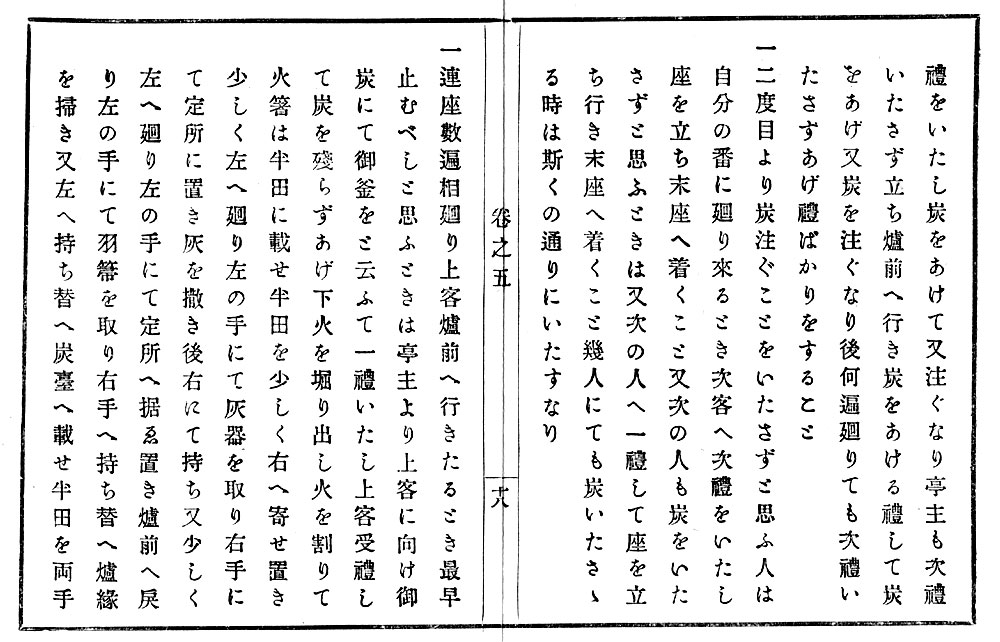 禮をいたし炭をあけて又注ぐなり亭主も次禮
いたさず立ち爐前へ行き炭をあける禮して炭
をあげ又炭を注ぐなり後何遍廻りても次禮い
たさずあげ禮ばかりをすること
一二度目より炭注ぐことをいたさずと思ふ人は
自分の番に廻り來るとき次客へ次禮をいたし
座を立ち末座へ着くこと又次の人も炭をいた
さずと思ふときは又次の人へ一禮して座を立
ち行き末座へ着くこと幾人にても炭いたさゝ
る時は斯くの通りにいたすなり
卷之五
十八
一連座數遍相廻り上客爐前へ行きたるとき最早
止むべしと思ふときは亭主より上客に向け御
炭にて御釜をと云ふて一禮いたし上客受禮し
て炭を殘らずあげ下火を堀り出し火を割りて
火箸は半田に載せ半田を少しく右へ寄せ置き
少しく左へ廻り左の手にて灰器を取り右手に
て定所に置き灰を撒き後右にて持ち又少しく
左へ廻り左の手にて定所へ据ゑ置き爐前へ戾
り左の手にて羽箒を取り右手へ持ち替へ爐緣
を掃き又左へ持ち替へ炭臺へ載せ半田を両手